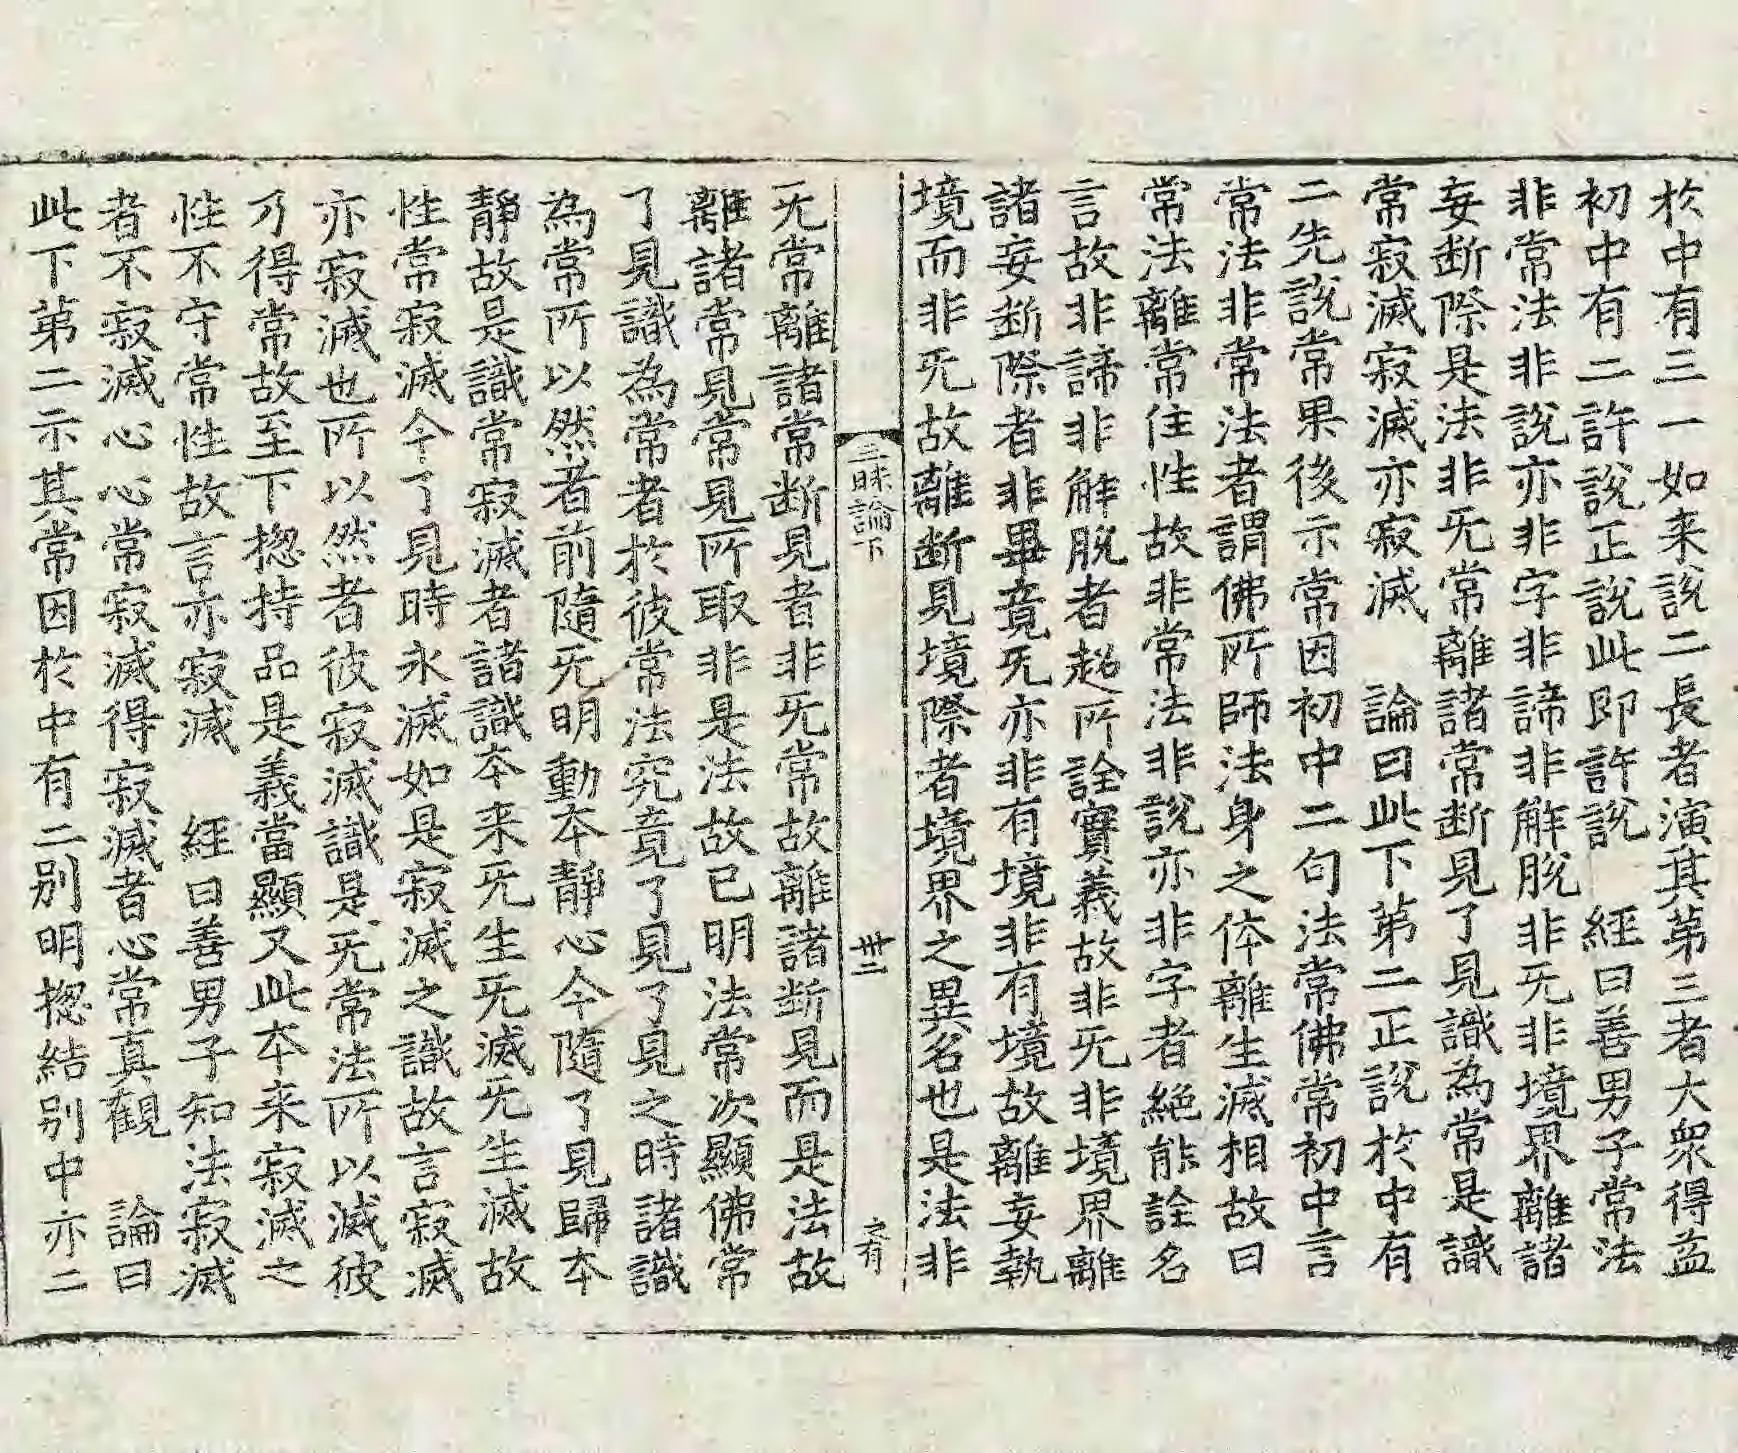 於中有三一如来說二長者演其第三者大衆得益
初中有二許說正說此即許說　經曰善男子常法
非常法非說亦非字非諦非解脫非旡非境界離諸
妄断際是法非旡常離諸常断見了見識為常是識
常寂滅寂滅亦寂滅　論曰此下第二正說於中有
二先說常果後示常因初中二句法常佛常初中言
常法非常法者謂佛所師法身之体離生滅相故曰
常法離常住性故非常法非說亦非字者絶能詮名
言故非諦非解脫者超所詮實義故非旡非境界離
諸妄断際者非畢竟旡亦非有境非有境故離妄執
境而非旡故離断見境際者境界之異名也是法非
三昧論下　卅二　之有
旡常離諸常断見者非旡常故離諸断見而是法故
離諸常見常見所取非是法故已明法常次顯佛常
了見識為常者於彼常法究竟了見了見之時諸識
為常所以然者前隨旡明動本靜心今隨了見歸本
靜故是識常寂滅者諸識本来旡生旡滅旡生滅故
性常寂滅今了見時永滅如是寂滅之識故言寂滅
亦寂滅也所以然者彼寂滅識是旡常法所以滅彼
乃得常故至下揔持品是義當顯又此本来寂滅之
性不守常性故言亦寂滅　經曰善男子知法寂滅
者不寂滅心心常寂滅得寂滅者心常真觀　論曰
此下第二示其常因於中有二別明揔結別中亦二